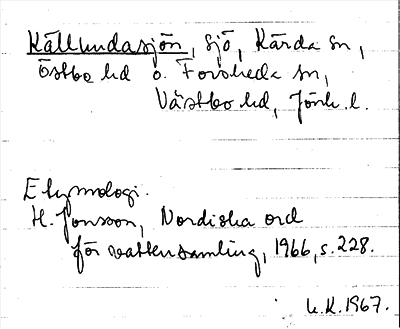 Källundasjön, sjö, Kärda sn,
Östbo hd o. Forsheda sn,
Västbo hd, Jönk. l.
Etymologi.
H. Jonsson, Nordiska ord
för vattensamling, 1966, s. 228.
U.K. 1967.